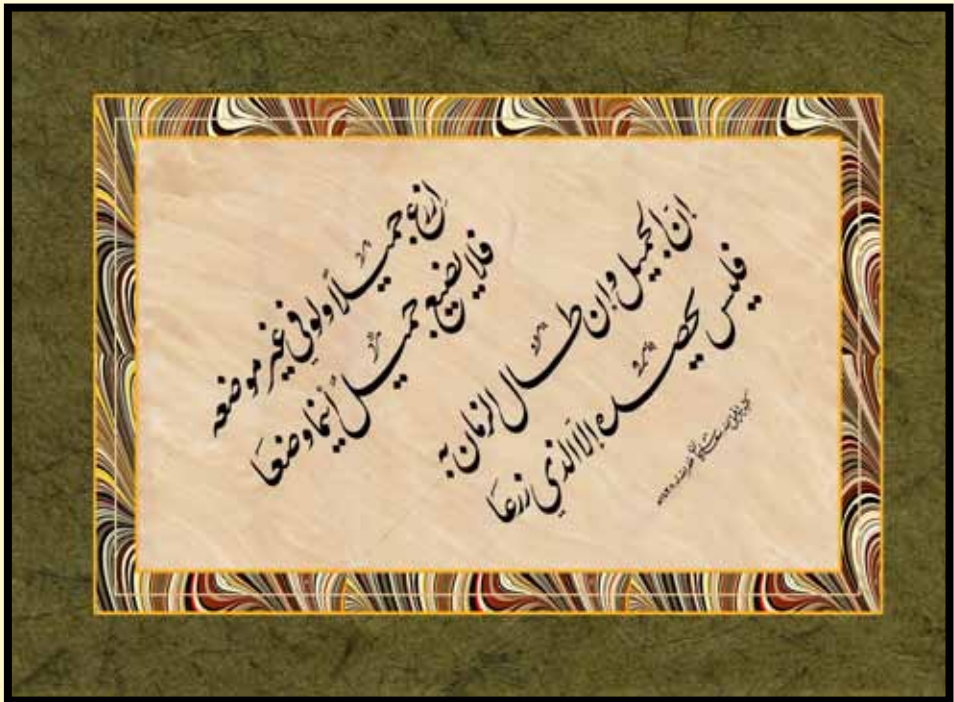 ازرع جميلاً ولو في غير موضعه
فلا يضيع جميلٌ أينما وضعَا
إنَّ الجميل وإن طال الزمان به
فليس يحصده إلا الذي زرعَا